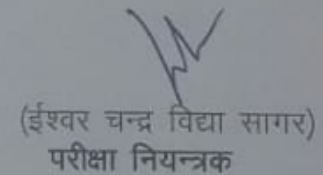 (ईश्वर चन्द्र विद्या सागर)
परीक्षा नियन्त्रक